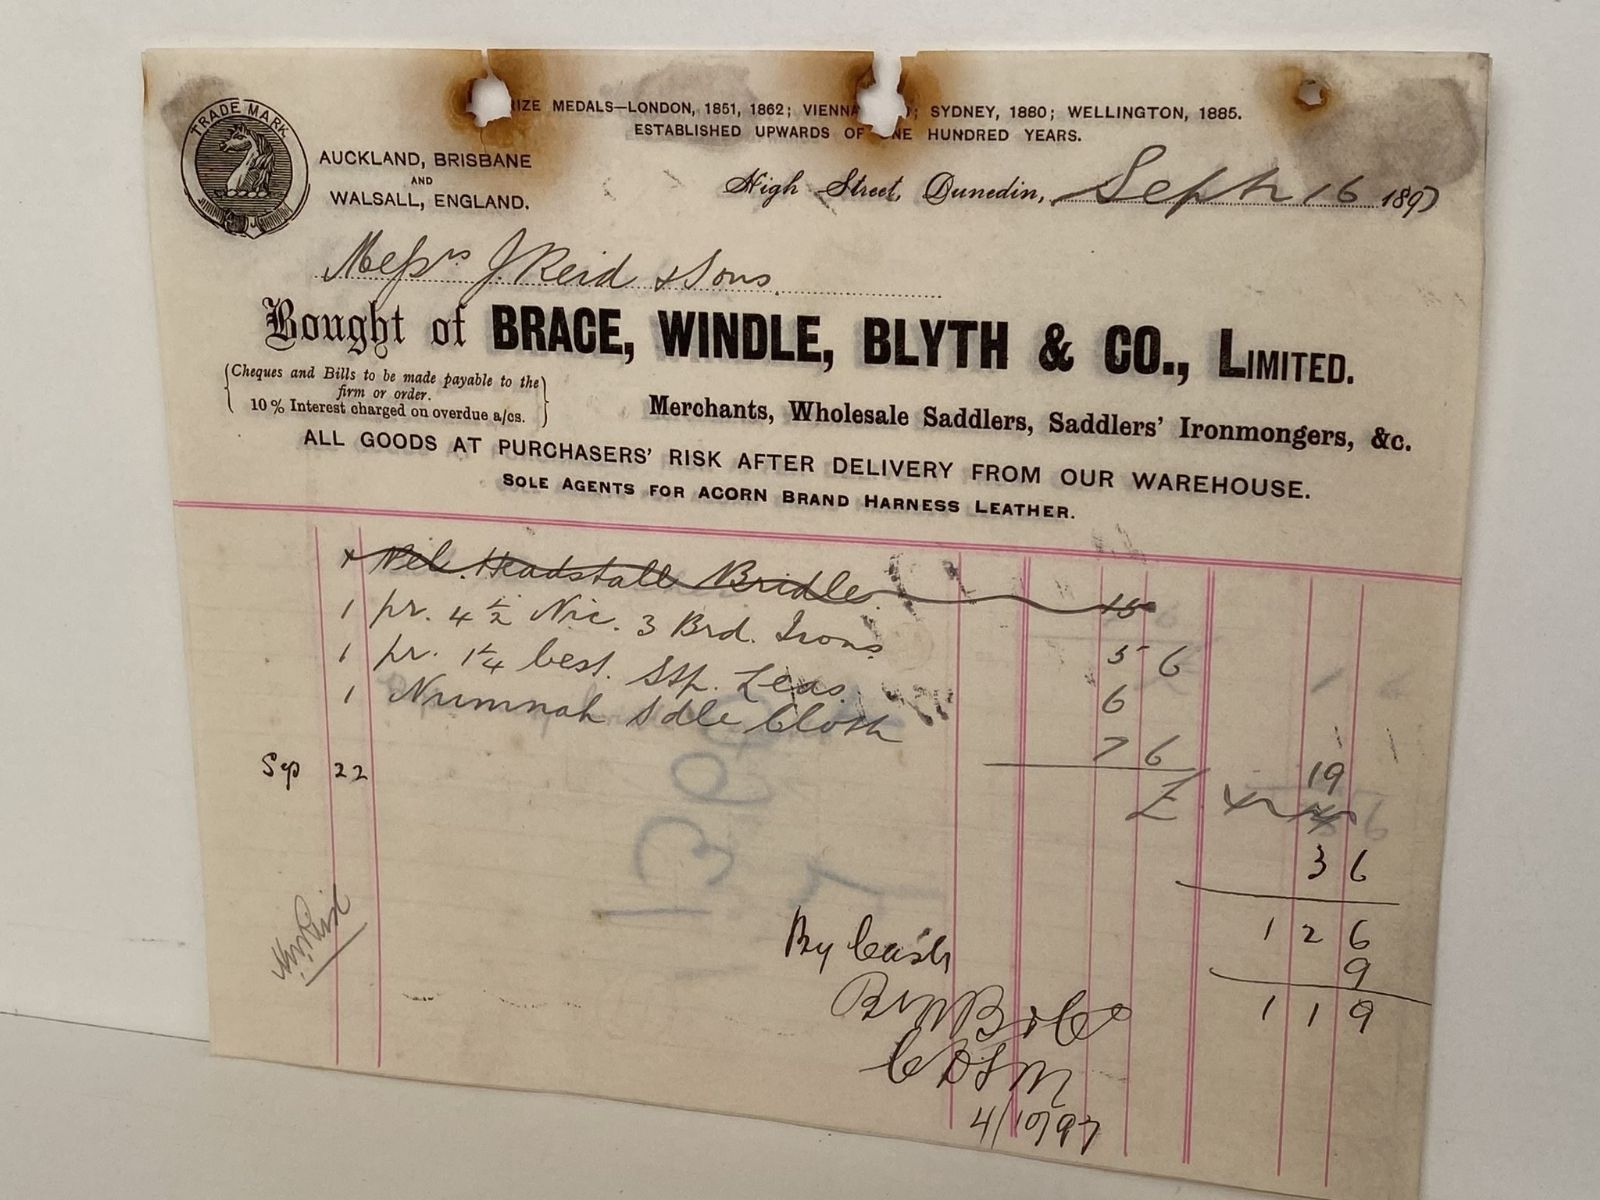 TRADE MARK
RIZE MEDALS—LONDON, 1851, 1862; VIENNA ; SYDNEY, 1880; WELLINGTON, 1885.
ESTABLISHED UPWARDS OF NE HUNDRED YEARS.
AUCKLAND, BRISBANE
AND
WALSALL, ENGLAND.
High Street, Dunedin, Sept 16 1897
Messrs J. Reid & Sons
Bought of BRACE, WINDLE, BLYTH & CO., LIMITED.
Cheques and Bills to be made payable to the
firm or order.
10% Interest charged on overdue a/cs.
Merchants, Wholesale Saddlers, Saddlers' Ironmongers, &c.
ALL GOODS AT PURCHASERS' RISK AFTER DELIVERY FROM OUR WAREHOUSE.
SOLE AGENTS FOR ACORN BRAND HARNESS LEATHER.
Headstall Bridle 15
1 pr. 4½ Nic. 3 Brd. Irons 5 6
1 pr. 1¼ best. Stp. Leas 6
1 Numnah Sdle Cloth 7 6
19
£
Sep 22
3 6
1 2 6
By Cash 9
1 1 9
BWB & Co
4/10/97